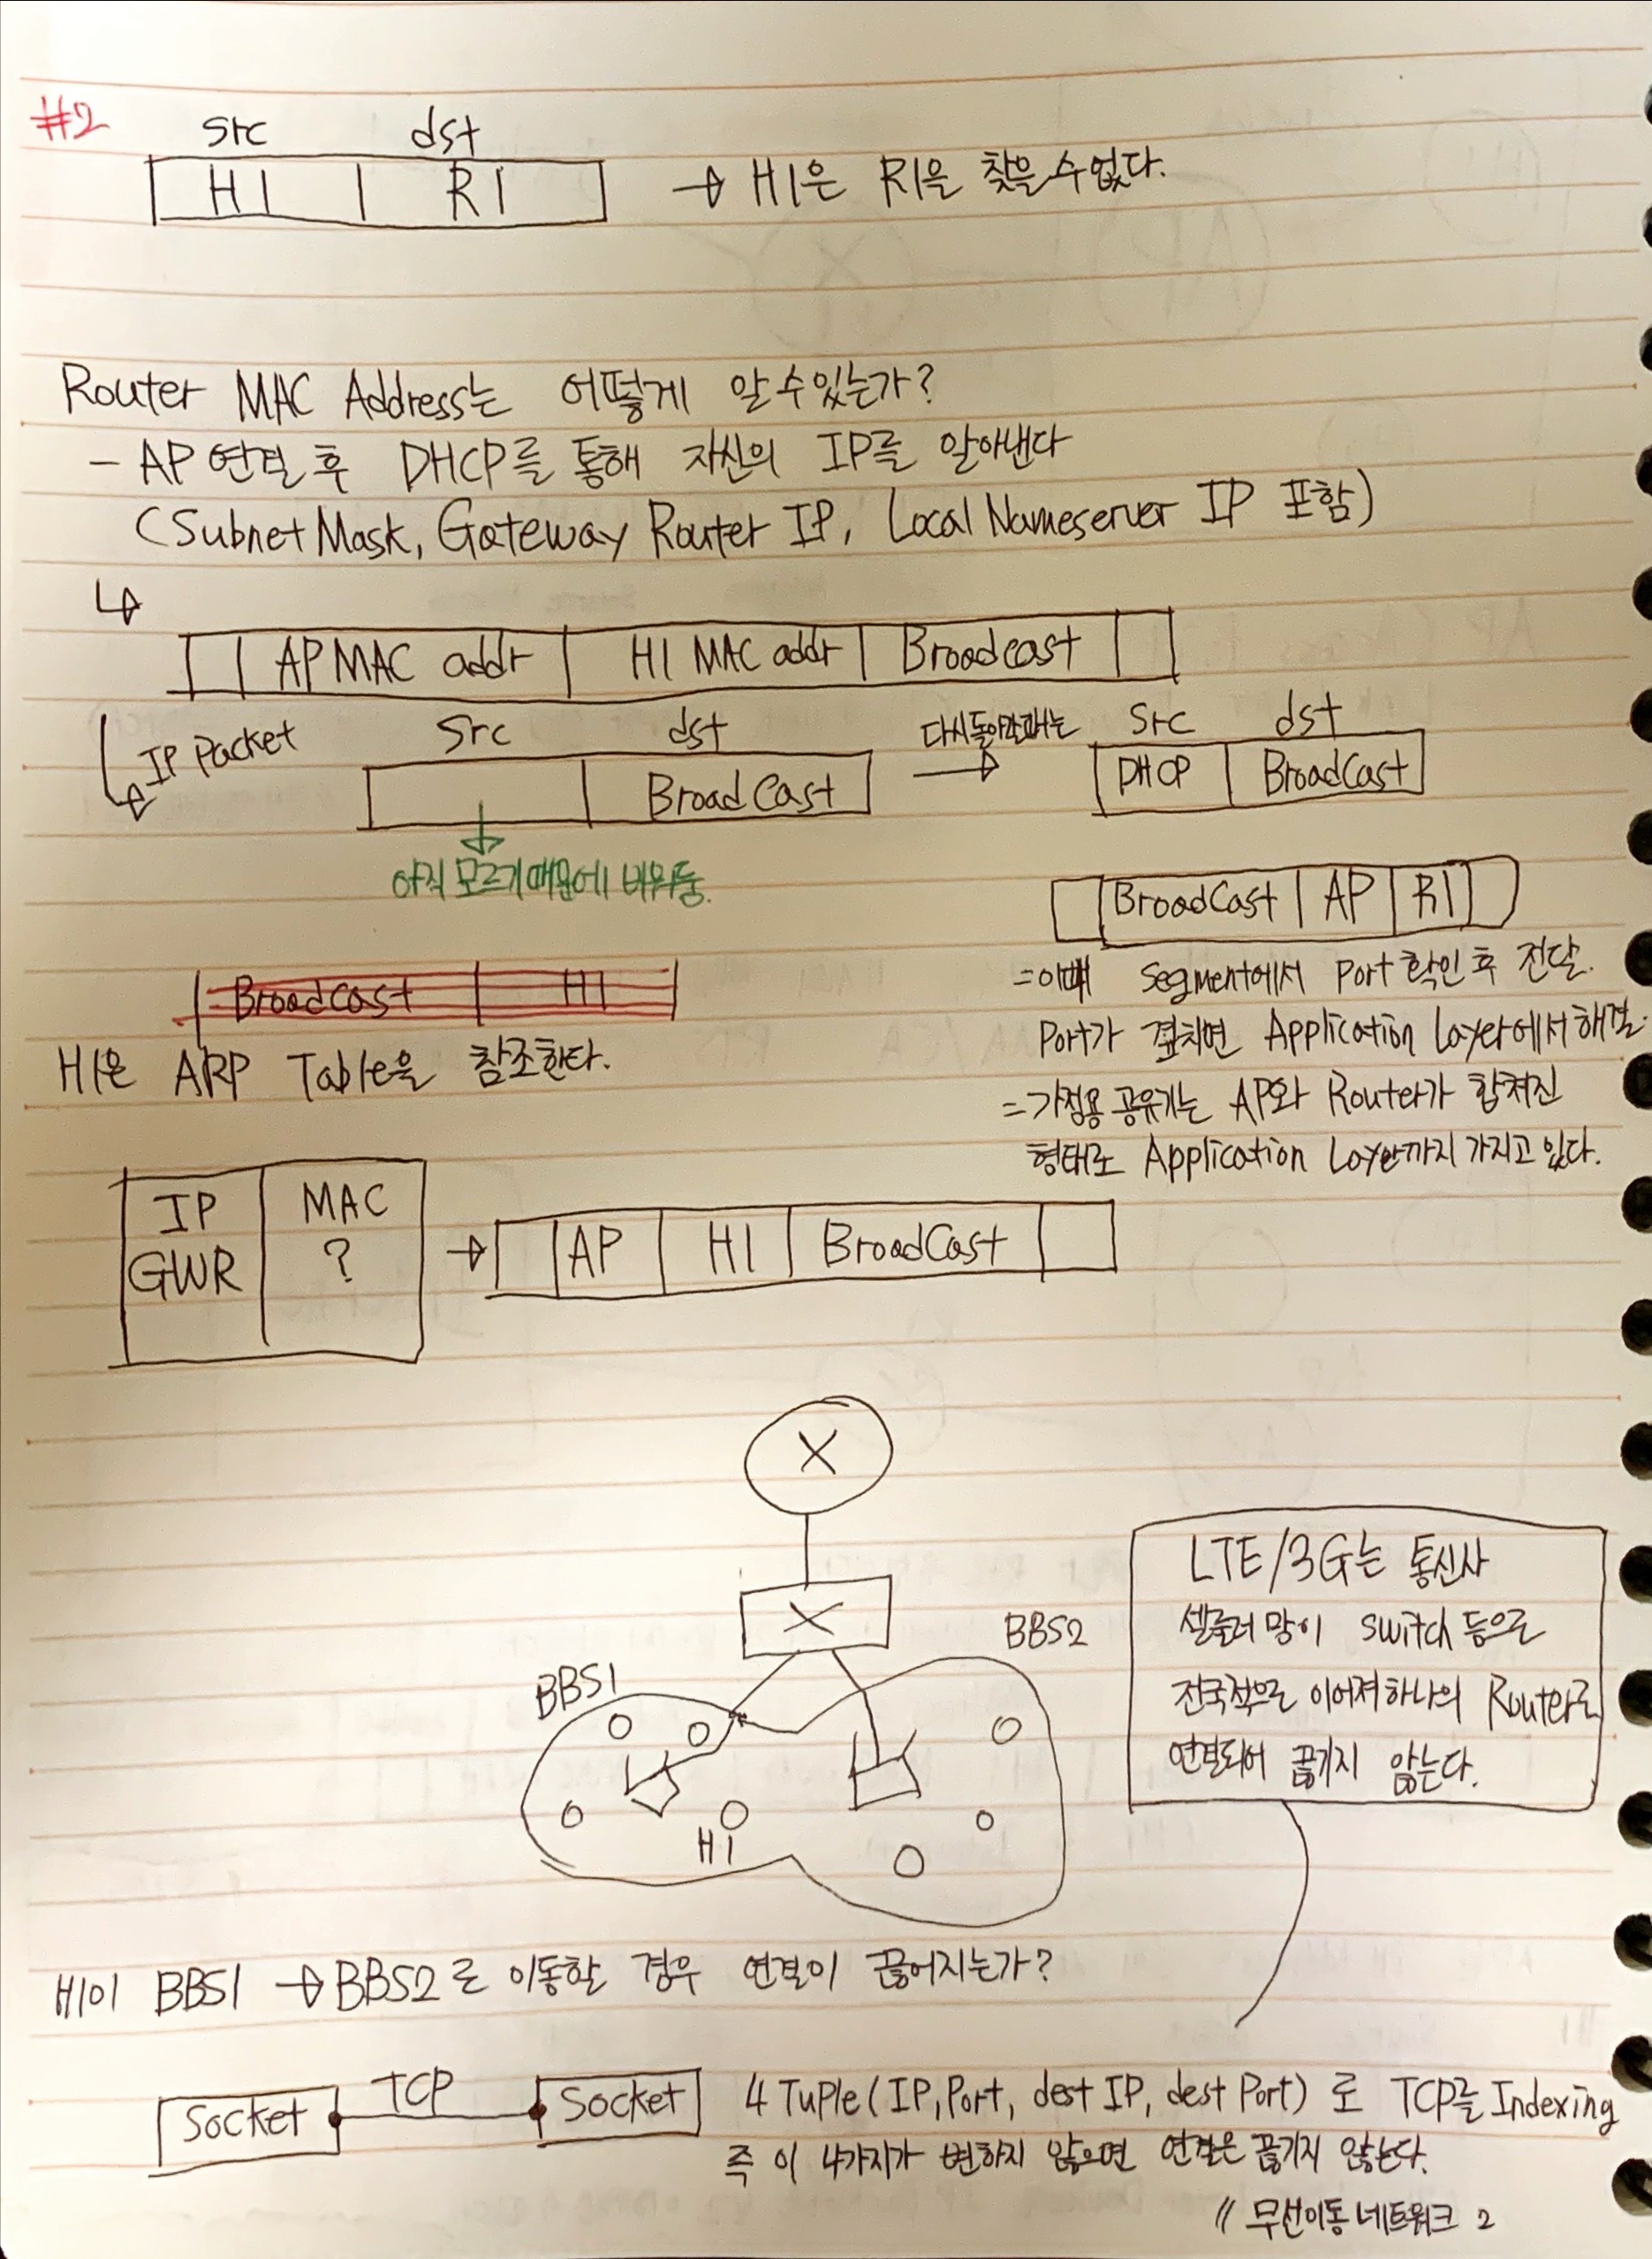 #2
src dst
H1 R1 → H1은 R1을 찾을 수 없다.
Router MAC Address는 어떻게 알 수 있는가?
- AP 연결 후 DHCP를 통해 자신의 IP를 알아낸다
(Subnet Mask, Gateway Router IP, Local Nameserver IP 포함)
AP MAC addr H1 MAC addr Broadcast
IP Packet src dst
BroadCast
아직 모르기 때문에 비워둠.
다시 돌아갈 때는 →
src dst
DHCP BroadCast
BroadCast AP R1
= 이때 Segment에서 Port 확인 후 전달.
Port가 겹치면 Application Layer에서 해결.
= 가정용 공유기는 AP와 Router가 합쳐진
형태로 Application Layer까지 가지고 있다.
Broadcast H1
H1은 ARP Table을 참조한다.
IP MAC
GWR ?
→ AP H1 BroadCast
X
X
BBS1
BBS2
H1
LTE/3G는 통신사
셀룰러 망이 switch 등으로
전국적으로 이어져 하나의 Router로
연결되어 끊기지 않는다.
H1이 BBS1 → BBS2로 이동할 경우 연결이 끊어지는가?
Socket TCP Socket
4 Tuple (IP, Port, dest IP, dest Port) 로 TCP를 Indexing
즉 이 4가지가 변하지 않으면 연결은 끊기지 않는다.
// 무선이동 네트워크 2